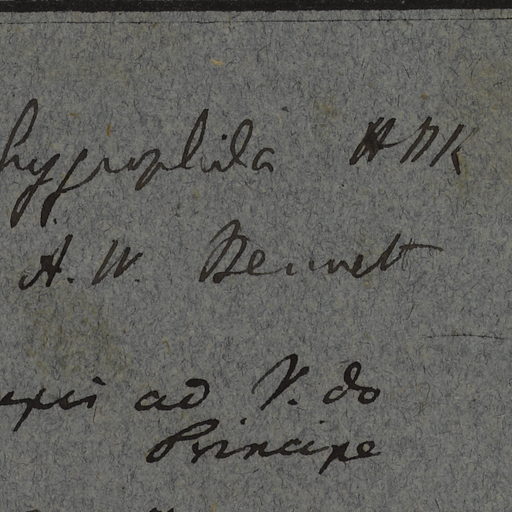 hygrophila HBK
A. W. Bennet
ad V. do
Principe